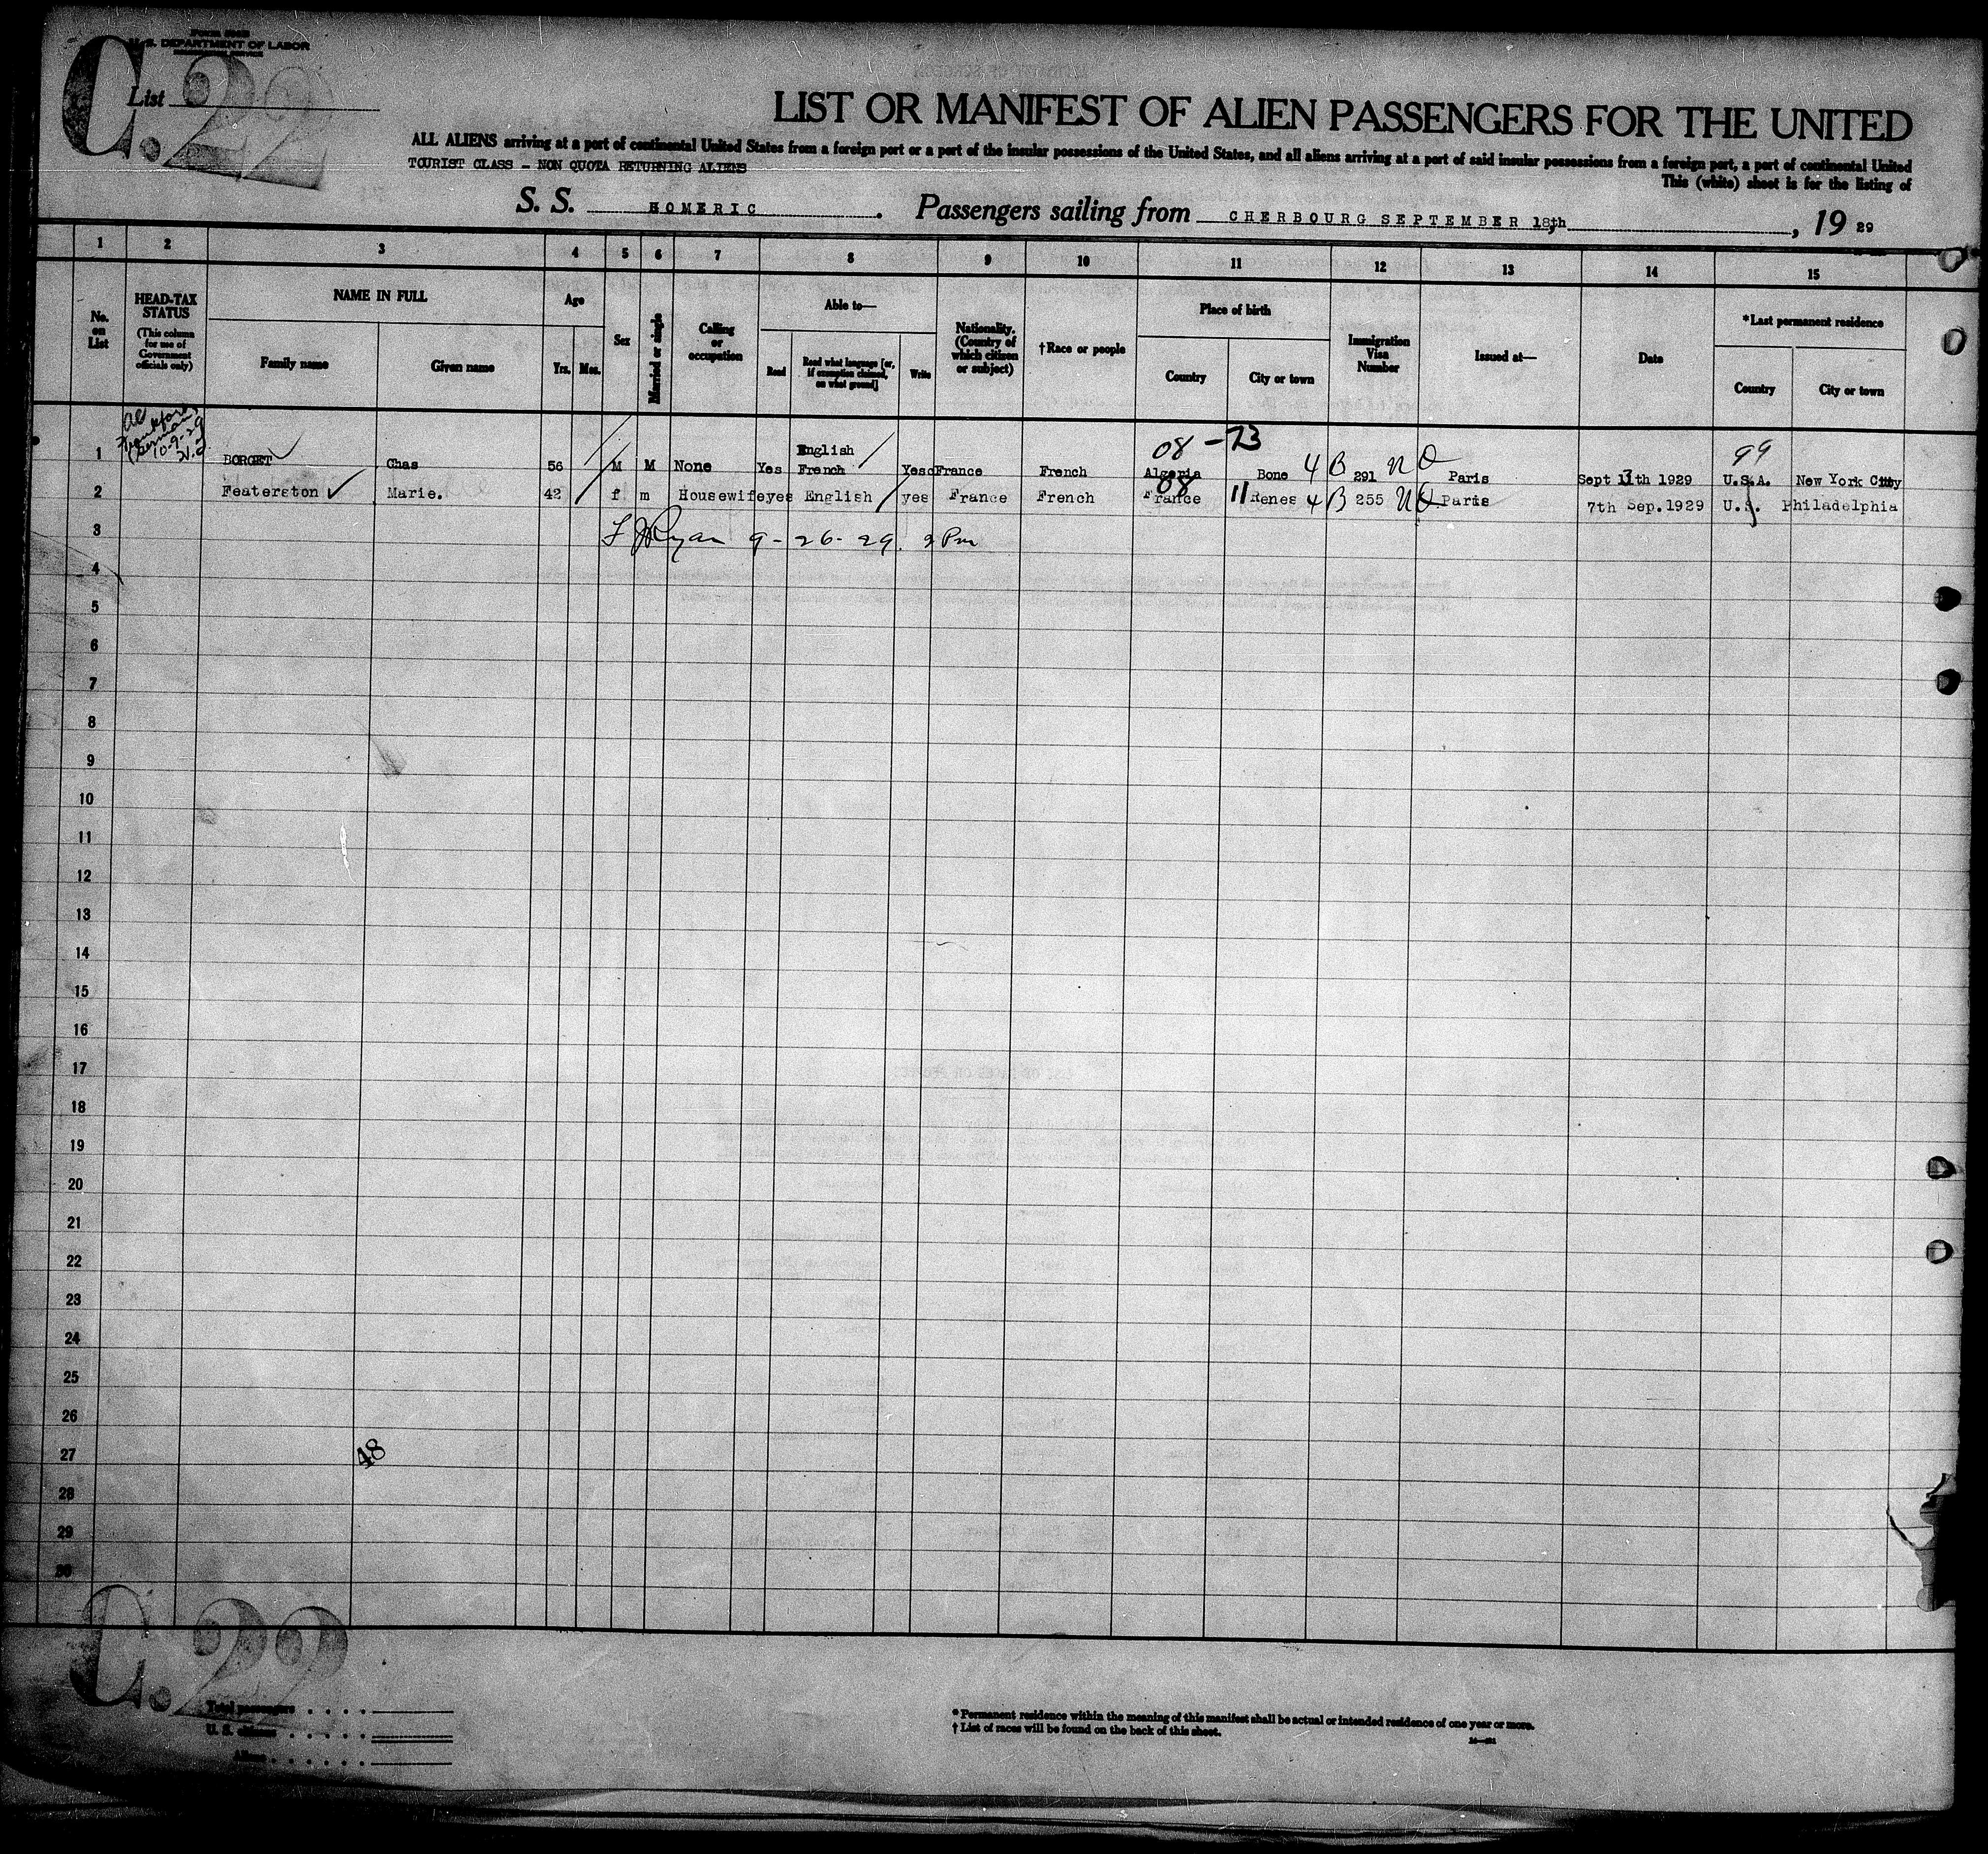 U. S. DEPARTMENT OF LABOR
C.22
List
LIST OR MANIFEST OF ALIEN PASSENGERS FOR THE UNITED
ALL ALIENS arriving at a port of continental United States from a foreign port or a port of the insular possessions of the United States, and all aliens arriving at a port of said insular possessions from a foreign port, a port of continental United
TOURIST CLASS - NON QUOTA RETURNING ALIENS
This (white) sheet is for the listing of
S. S. HOMERIC. Passengers sailing from CHERBOURG SEPTEMBER 18th, 19 29
1 2 3 4 5 6 7 8 9 10 11 12 13 14 15
No. on List
HEAD-TAX STATUS
(This column for use of Government officials only)
NAME IN FULL
Family name
Given name
Age
Yrs. Mos.
Sex
Married or single
Calling or occupation
Able to—
Read
Read what language [or, if exemption claimed, on what ground]
Write
Nationality. (Country of which citizen or subject)
†Race or people
Place of birth
Country
City or town
Immigration Visa Number
Issued at—
Date
*Last permanent residence
Country
City or town
Frankfort
Germany
10-9-29
08 -73
99
1 BORGET Chas 56 M M None Yes English French Yes France French Algeria Bone 4 B 291 NQ Paris Sept 13th 1929 U.S.A. New York City
08
2 Featerston Marie. 42 f m Housewife yes English yes France French France 11 Renes 4 B 255 NQ Paris 7th Sep.1929 U.S. Philadelphia
3 F J Ryan 9-26-29. 2 Pm
4
5
6
7
8
9
10
11
12
13
14
15
16
17
18
19
20
21
22
23
24
25
26
27 48
28
29
30
C.22
Total passengers
U. S. citizens
Aliens
* Permanent residence within the meaning of this manifest shall be actual or intended residence of one year or more.
† List of races will be found on the back of this sheet.